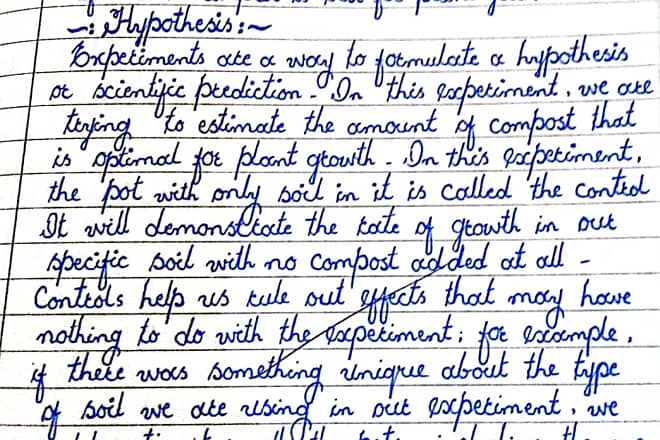 ~: Hypothesis:~
Experiments are a way to formulate a hypothesis
or scientific prediction - In this experiment, we are
trying to estimate the amount of compost that
is optimal for plant growth - In this experiment,
the pot with only soil in it is called the control
It will demonstrate the rate of growth in our
specific soil with no compost added at all -
Controls help us rule out effects that may have
nothing to do with the experiment; for example,
if there was something unique about the type
of soil we are using in our experiment, we